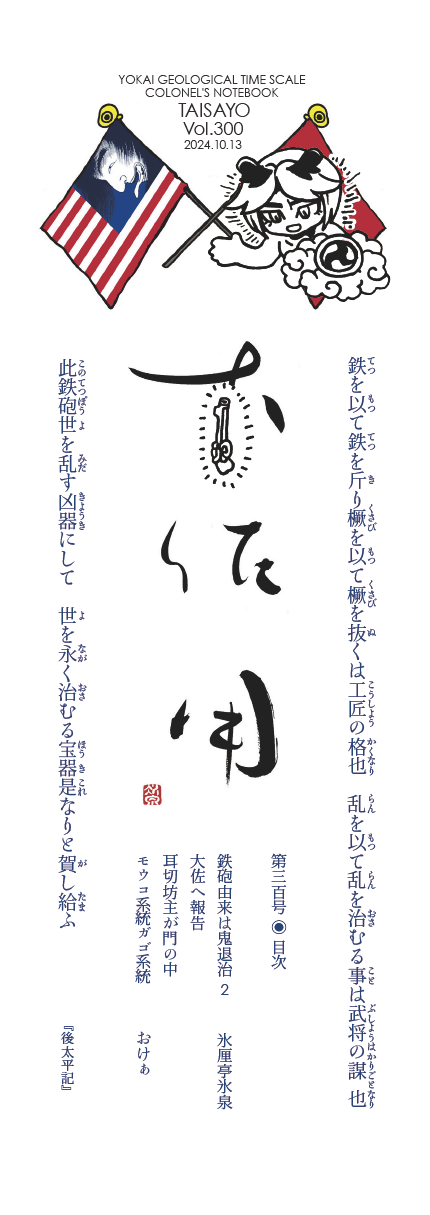 YOKAI GEOLOGICAL TIME SCALE
COLONEL'S NOTEBOOK
TAISAYO
Vol.300
2024.10.13
鉄を以て鉄を斤り橛を以て橛を抜くは工匠の格也　乱を以て乱を治むる事は武将の謀也
大佐用
第三百号◉目次
鉄砲由来は鬼退治 2　氷厘亭氷泉
大佐へ報告
耳切坊主が門の中
モウコ系統ガゴ系統　おけぁ
此鉄砲世を乱す凶器にして　世を永く治むる宝器是なりと賀し給ふ
『後太平記』